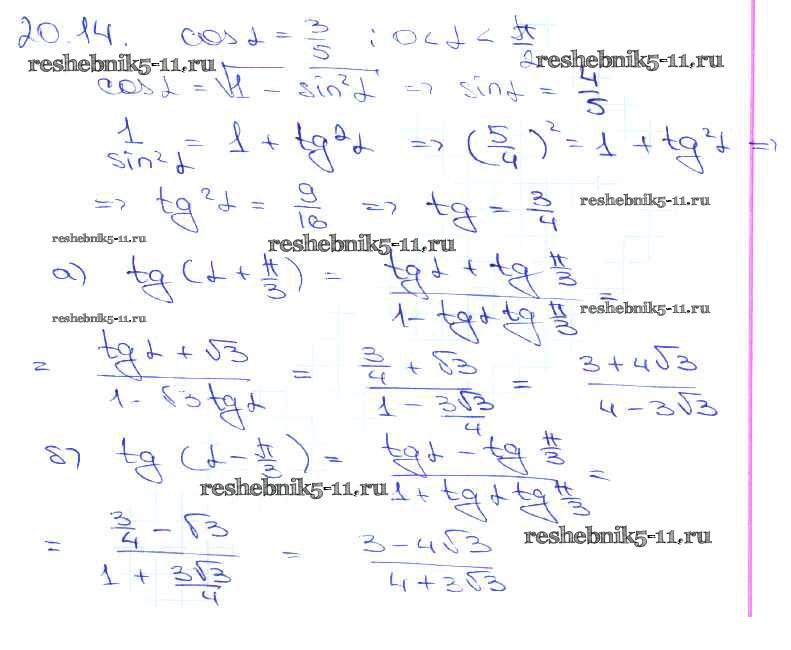 20.14. cos α = 3/5 ; 0 < α < π/2
reshebnik5-11.ru reshebnik5-11.ru
cos α = √(1 - sin²α) => sin α = 4/5
1/sin²α = 1 + tg²α => (5/4)² = 1 + tg²α =>
=> tg²α = 9/16 => tg = 3/4 reshebnik5-11.ru
reshebnik5-11.ru reshebnik5-11.ru
а) tg(α + π/3) = (tg α + tg π/3)/(1 - tg α tg π/3) =
reshebnik5-11.ru reshebnik5-11.ru
= (tg α + √3)/(1 - √3 tg α) = (3/4 + √3)/(1 - 3√3/4) = (3 + 4√3)/(4 - 3√3)
б) tg(α - π/3) = (tg α - tg π/3)/(1 + tg α tg π/3) =
reshebnik5-11.ru
= (3/4 - √3)/(1 + 3√3/4) = (3 - 4√3)/(4 + 3√3)
reshebnik5-11.ru